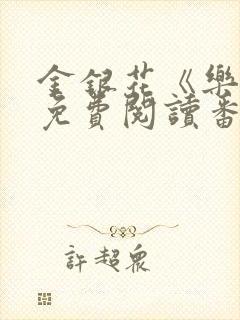 金銀花《樂
免費閱讀番
許超眾